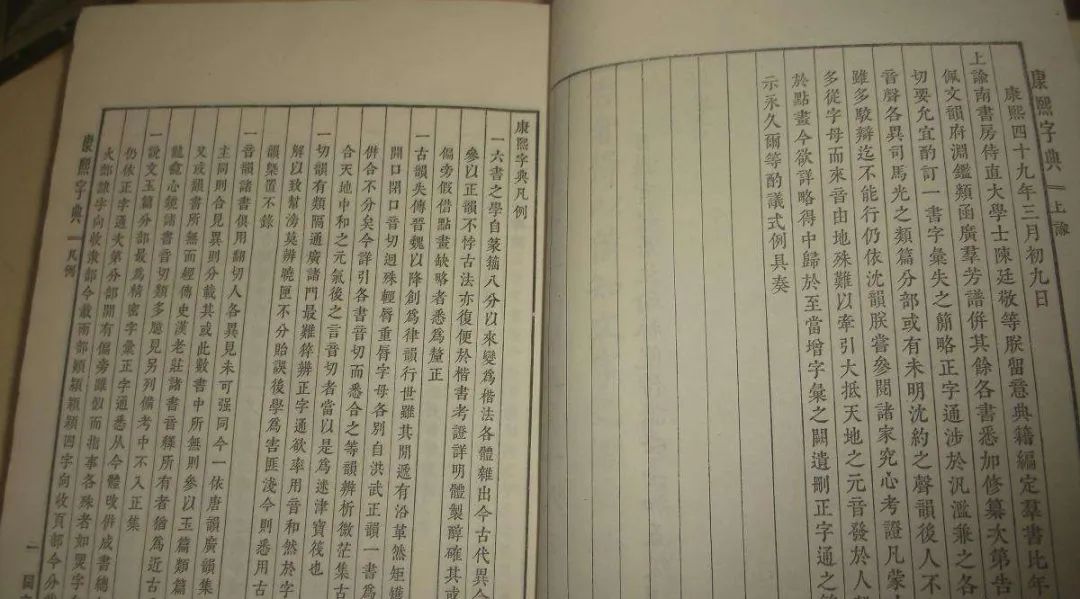 康熙字典 上諭
康熙四十九年三月初九日
上諭南書房侍直大學士陳廷敬等朕留意典籍編定羣書比年
佩文韻府淵鑑類函廣羣芳譜併其餘各書悉加修纂次第告
切要允宜酌訂一書字彙失之簡略正字通涉於汎濫兼之各
音聲各異司馬光之類篇分部或有未明沈約之聲韻後人不
雖多駮辯迄不能行仍依沈韻朕嘗參閱諸家究心考證凡蒙
多從字母而來音由地殊難以牽引大抵天地之元音發於人
於點畫今欲詳略得中歸於至當增字彙之闕遺刪正字通之
示永久爾等酌議式例具奏
康熙字典凡例
一六書之學自篆籀八分以來變爲楷法各體雜出今古代異今
參以正韻不悖古法亦復便於楷書考證詳明體製醇確其或
偏旁假借點畫缺略者悉爲釐正
一古韻失傳晉魏以降創爲律韻行世雖其閒遞有沿革然矩矱
開口閉口音切迥殊輕脣重脣字母各別自洪武正韻一書爲
併合不分矣今詳引各書音切而悉合之等韻辨析微茫集古
合天地中和之元氣後之言音切者當以是爲迷津寶筏也
一切韻有類隔通廣諸門最難猝辨正字通欲率用音和然於字
解以致幫滂莫辨曉匣不分貽誤後學爲害匪淺今則悉用古
韻槩置不錄
一音韻諸書俱用翻切人各異見未可强同今一依唐韻廣韻集
主同則合見異則分載其或此數書中所無則參以玉篇類篇
又或韻書所無而經傳史漢老莊諸書音釋所有者猶爲近古
龍龕心鏡諸書音切類多臆見另列備考中不入正集
一說文玉篇分部最爲精密字彙正字通悉从今體改併成書總
仍依正字通次第分部閒有偏旁雖似而指事各殊者如煛字
火部隷字向收隶部今載雨部頴潁穎熲四字向收頁部今分
康熙字典 凡例
二